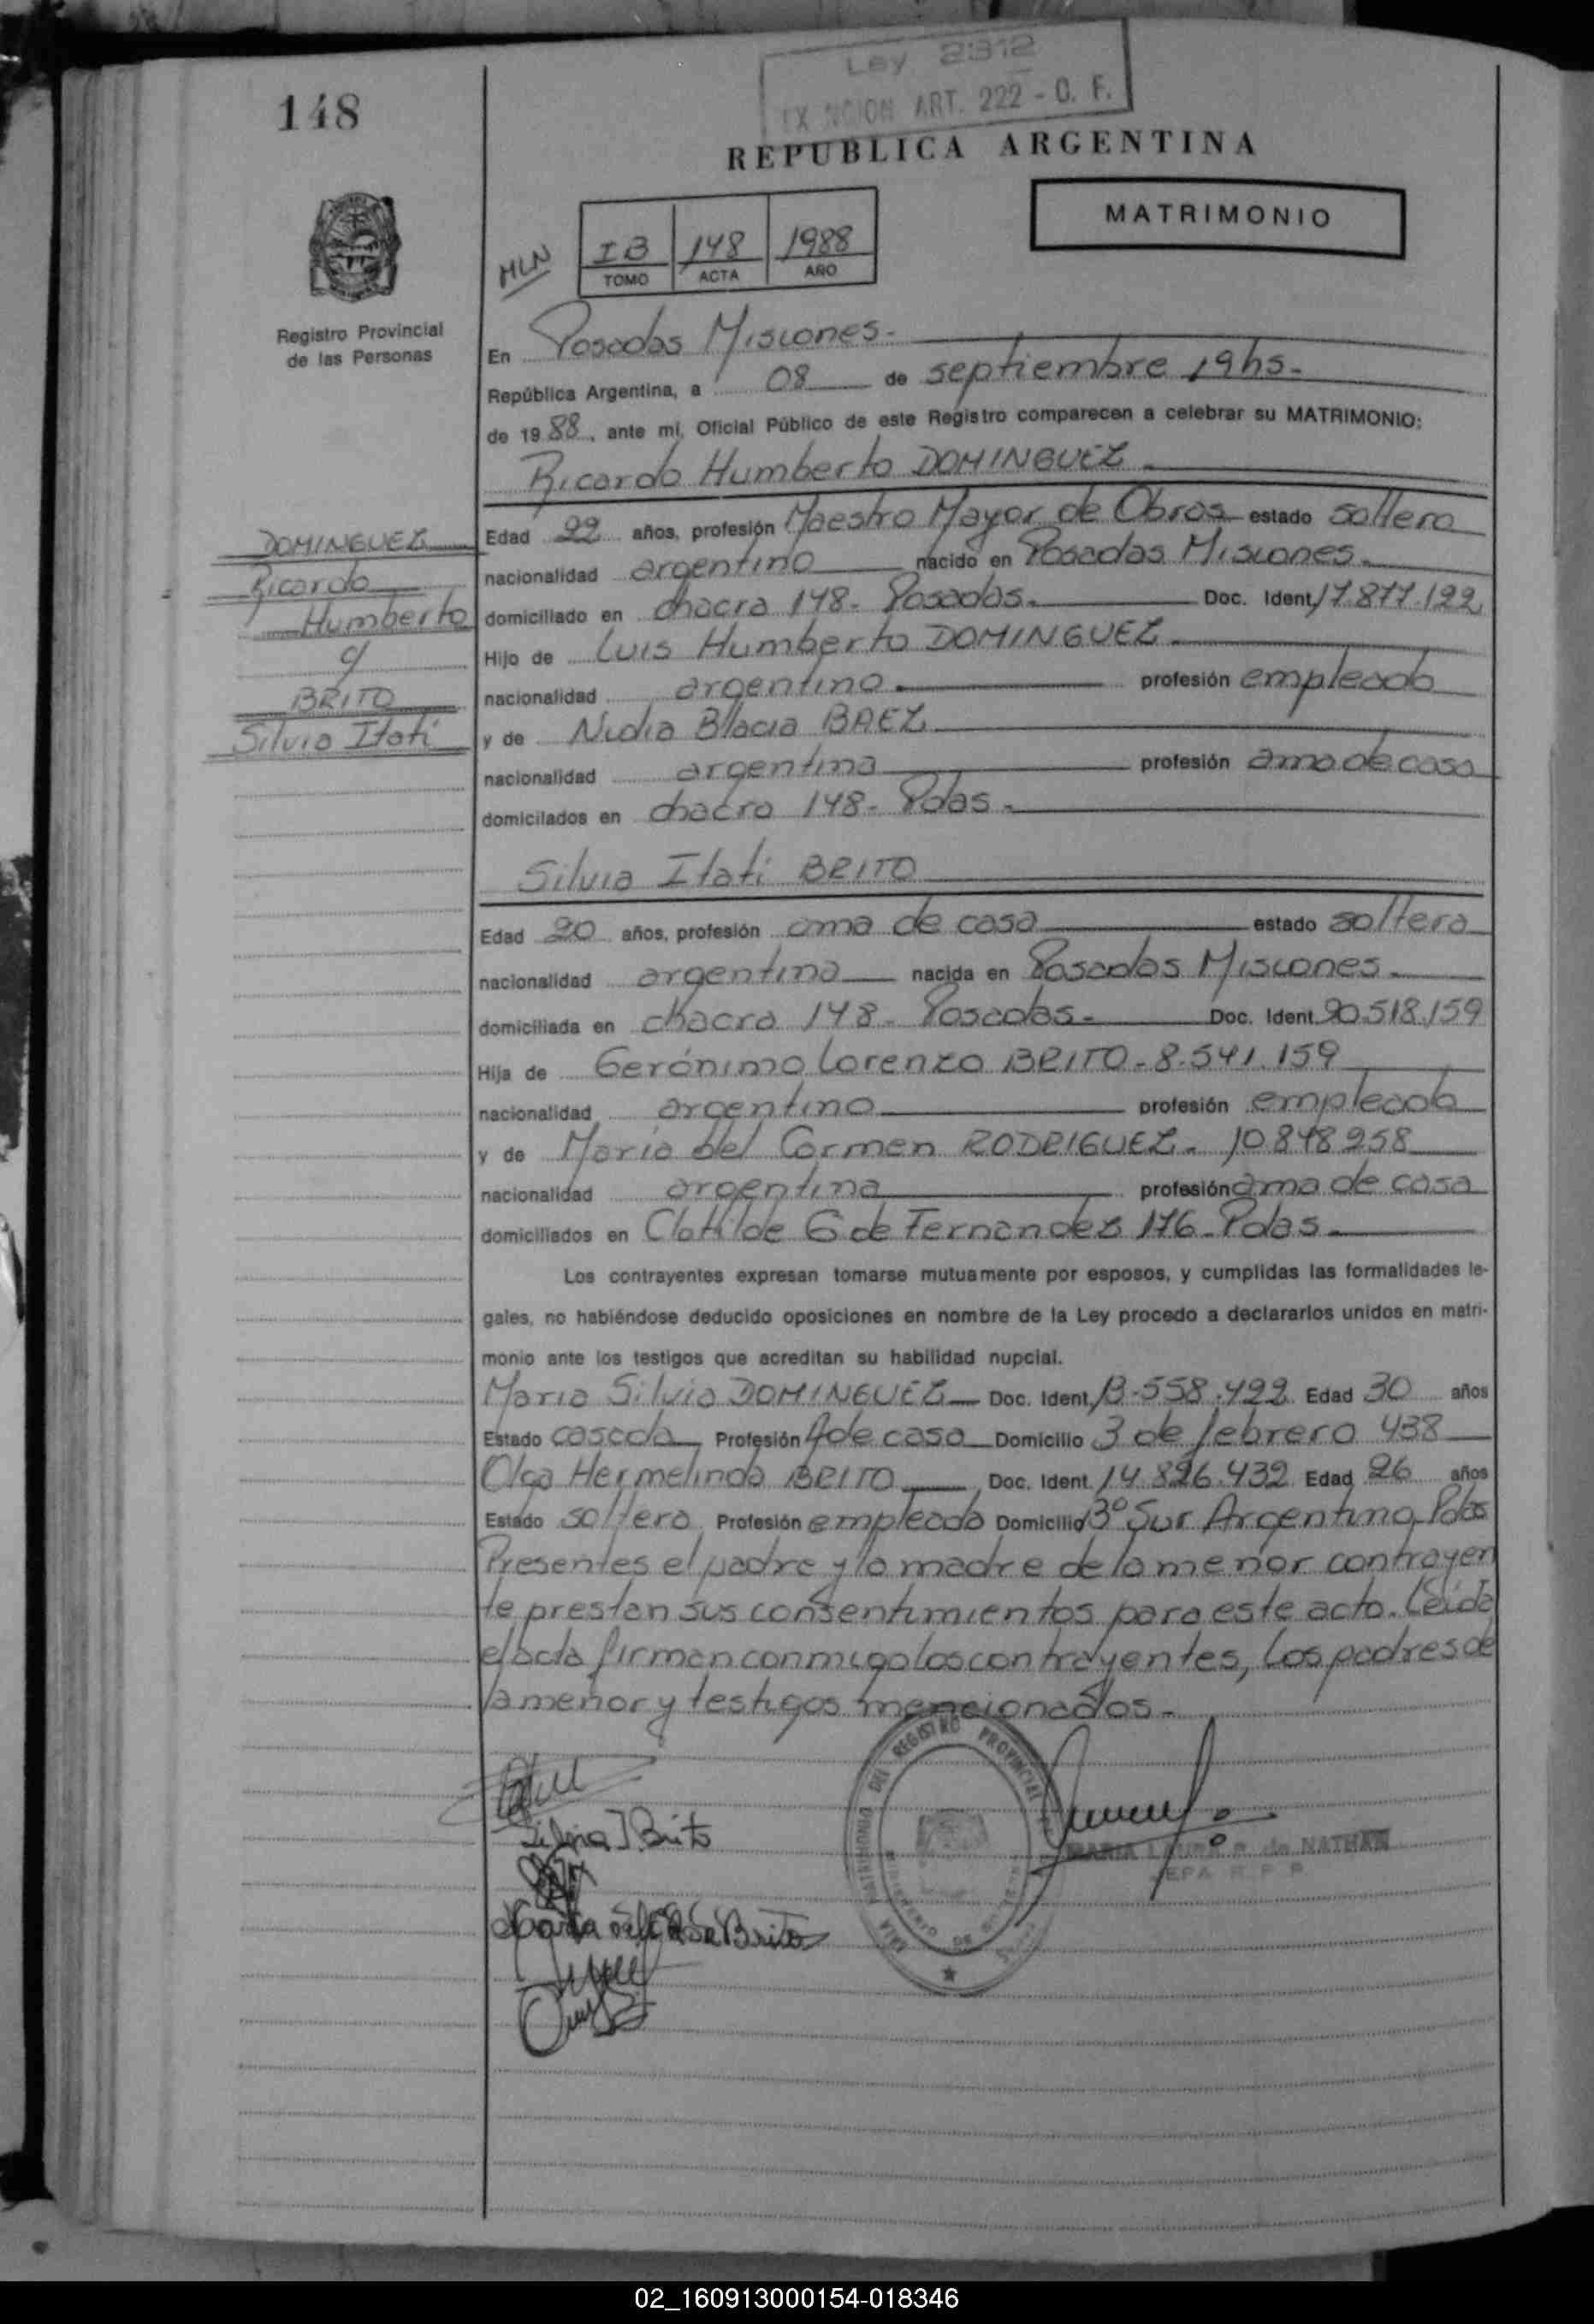 Ley 2312
ART. 222 - C. F.
148
REPUBLICA ARGENTINA
MATRIMONIO
MLN
IB 148 1988
TOMO ACTA AÑO
Registro Provincial
de las Personas
En Posadas Misiones.-
República Argentina, a 08 de septiembre 19hs.-
de 1988, ante mí, Oficial Público de este Registro comparecen a celebrar su MATRIMONIO:
Ricardo Humberto DOMINGUEZ
Edad 22 años, profesión Maestro Mayor de Obras estado soltero
nacionalidad argentino nacido en Posadas Misiones.
domiciliado en chacra 148- Posadas.- Doc. Ident. 17.877.122
Hijo de Luis Humberto DOMINGUEZ
nacionalidad argentino. profesión empleado
y de Nidia Blacia BAEZ
nacionalidad argentina profesión ama de casa
domicilados en chacra 148- Pdas.-
DOMINGUEZ
Ricardo
Humberto
c/
BRITO
Silvia Itati
Silvia Itati BRITO
Edad 20 años, profesión ama de casa estado soltera
nacionalidad argentina nacida en Posadas Misiones.
domiciliada en chacra 148- Posadas.- Doc. Ident. 20.518.159
Hija de Gerónimo Lorenzo BRITO-8.541.159
nacionalidad argentino profesión empleado
y de María del Carmen RODRIGUEZ.- 10.848.258
nacionalidad argentina profesión ama de casa
domiciliados en Clotilde G de Fernandez 176-Pdas.-
Los contrayentes expresan tomarse mutuamente por esposos, y cumplidas las formalidades le-
gales, no habiéndose deducido oposiciones en nombre de la Ley procedo a declararlos unidos en matri-
monio ante los testigos que acreditan su habilidad nupcial.
Maria Silvia DOMINGUEZ Doc. Ident. 13.558.422 Edad 30 años
Estado casada Profesión A de casa Domicilio 3 de febrero 438
Olga Hermelinda BRITO Doc. Ident. 14.826.432 Edad 26 años
Estado soltera Profesión empleada Domicilio Bº Sur Argentino Pdas
Presentes el padre y la madre de la menor contrayen
te prestan sus consentimientos para este acto. Leida
el acta firman conmigo los contrayentes, los padres de
la menor y testigos mencionados.-
Silvia I Brito
REGISTRO PROVINCIAL
de NATHAN
02_160913000154-018346